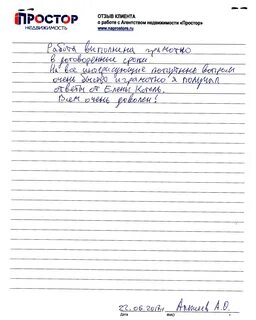 ПРОСТОР
НЕДВИЖИМОСТЬ
ОТЗЫВ КЛИЕНТА
о работе с Агентством недвижимости «Простор»
www.naprostore.ru
Работа выполнена грамотно
в договоренные сроки.
На все интересующие попутные вопросы
очень быстро и грамотно я получил
ответы от Елены Козель.
Всем очень доволен!
22.06.2017г.
А.О.
Дата
ФИО